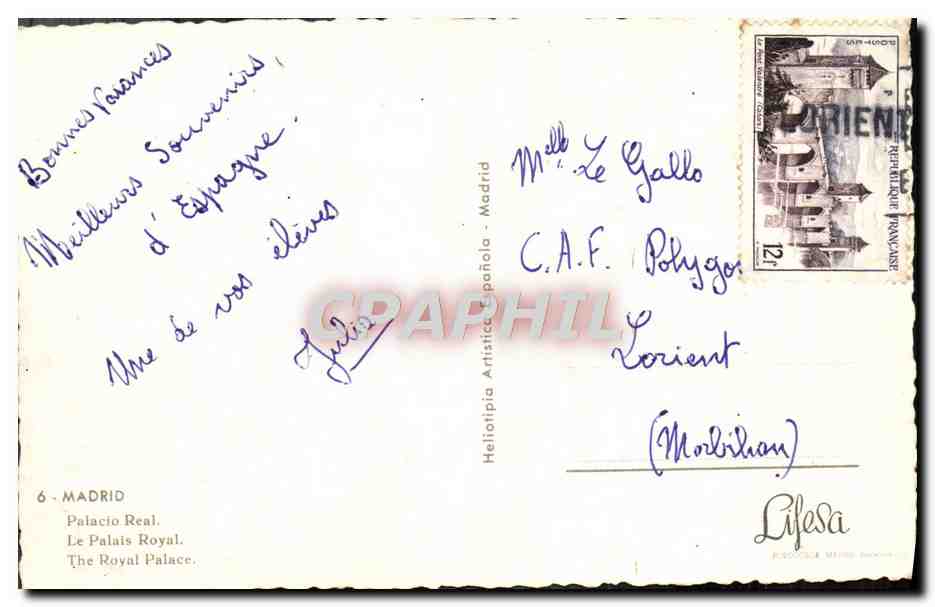 Bonnes vacances
Meilleurs Souvenirs,
d'Espagne.
Une de vos élèves
Julia
6 - MADRID
Palacio Real.
Le Palais Royal.
The Royal Palace.
Heliotipia Artística Española - Madrid
CPAPHIL
Melle Le Gallo
C.A.F. Polygo
Lorient
(Morbihan)
Lifesa
POSTES
Le Pont Valentré (Cahors)
12f
REPUBLIQUE FRANÇAISE
LORIENT